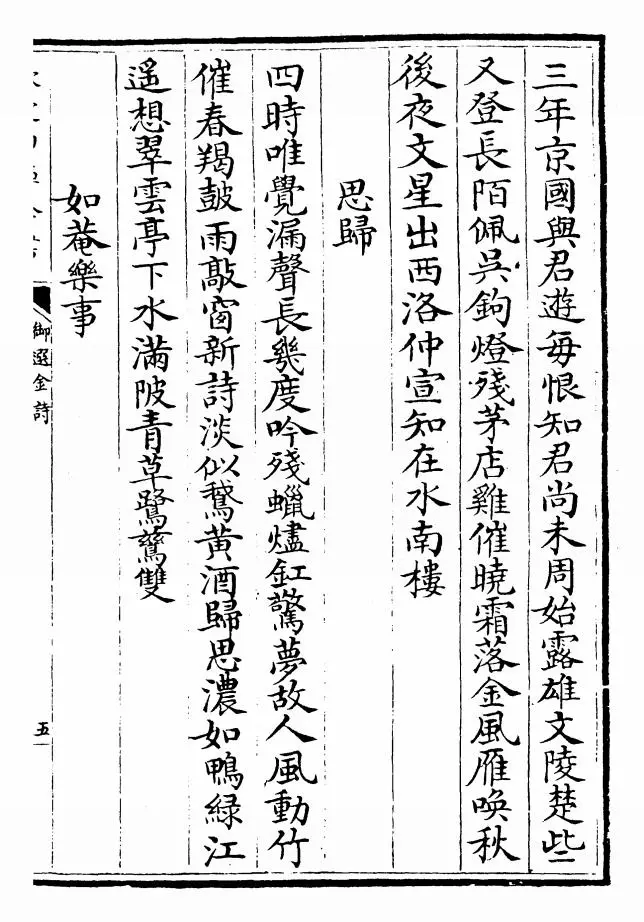 三年京國與君遊每恨知君尚未周始露雄文陵楚些
又登長陌佩吳鉤燈殘茅店雞催曉霜落金風雁喚秋
後夜文星出西洛仲宣知在水南樓
思歸
四時唯覺漏聲長幾度吟殘蠟燼釭驚夢故人風動竹
催春羯鼓雨敲窗新詩淡似鵞黃酒歸思濃如鴨綠江
遥想翠雲亭下水滿陂青草鷺鷥雙
如菴樂事
御選金詩
五